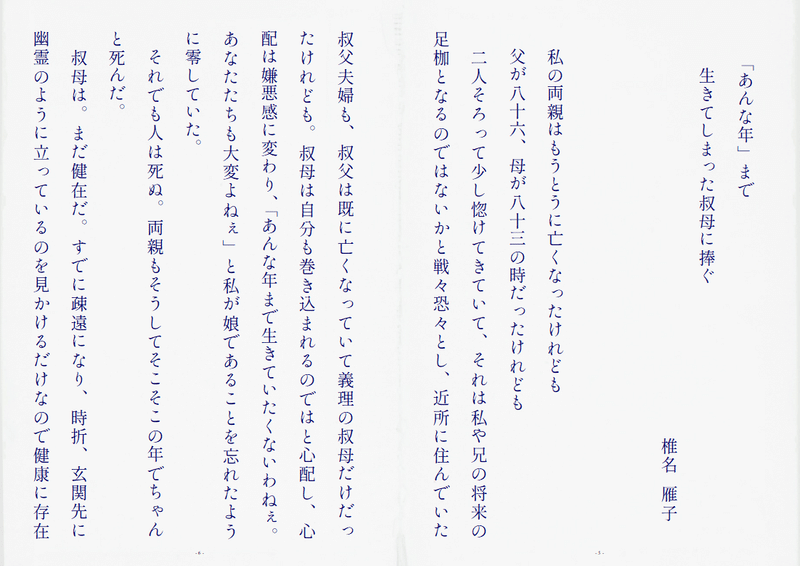 「あんな年」まで
生きてしまった叔母に捧ぐ
椎名 雁子
私の両親はもうとうに亡くなったけれども
父が八十六、母が八十三の時だったけれども
二人そろって少し惚けてきていて、それは私や兄の将来の
足枷となるのではないかと戦々恐々とし、近所に住んでいた
- 5 -
叔父夫婦も、叔父は既に亡くなっていて義理の叔母だけだっ
たけれども。叔母は自分も巻き込まれるのではと心配し、心
配は嫌悪感に変わり、「あんな年まで生きていたくないわねぇ。
あなたたちも大変よねぇ」と私が娘であることを忘れたよう
に零していた。
それでも人は死ぬ。両親もそうしてそこそこの年でちゃん
と死んだ。
叔母は。まだ健在だ。すでに疎遠になり、時折、玄関先に
幽霊のように立っているのを見かけるだけなので健康に存在
- 6 -